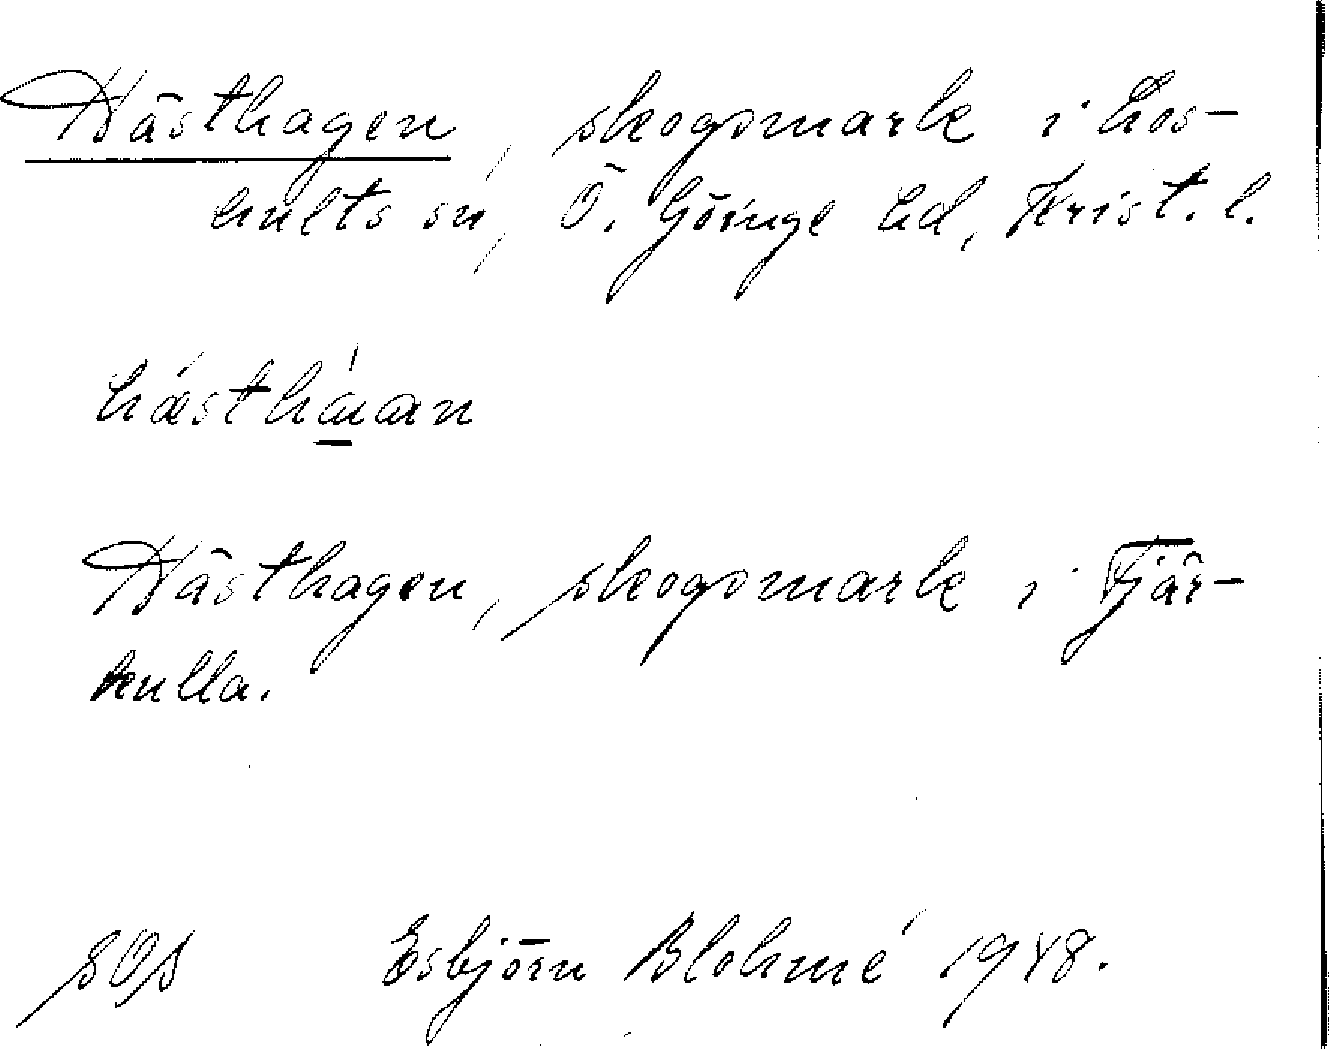 Hästhagen, skogsmark i Los-
hults sn, Ö. Göinge hd, Krist. l.
hæstháan
Hästhagen, skogsmark i Tjär-
kulla.
SOS Esbjörn Blohmé 1948.